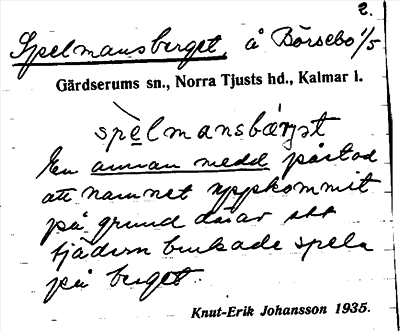 2.
Spelmansberget, å Börsebo 1/5
Gärdserums sn., Norra Tjusts hd., Kalmar l.
spelmansbärjet
En annan medd påstod
att namnet uppkommit
på grund därav att
tjädern brukade spela
på berget.
Knut-Erik Johansson 1935.